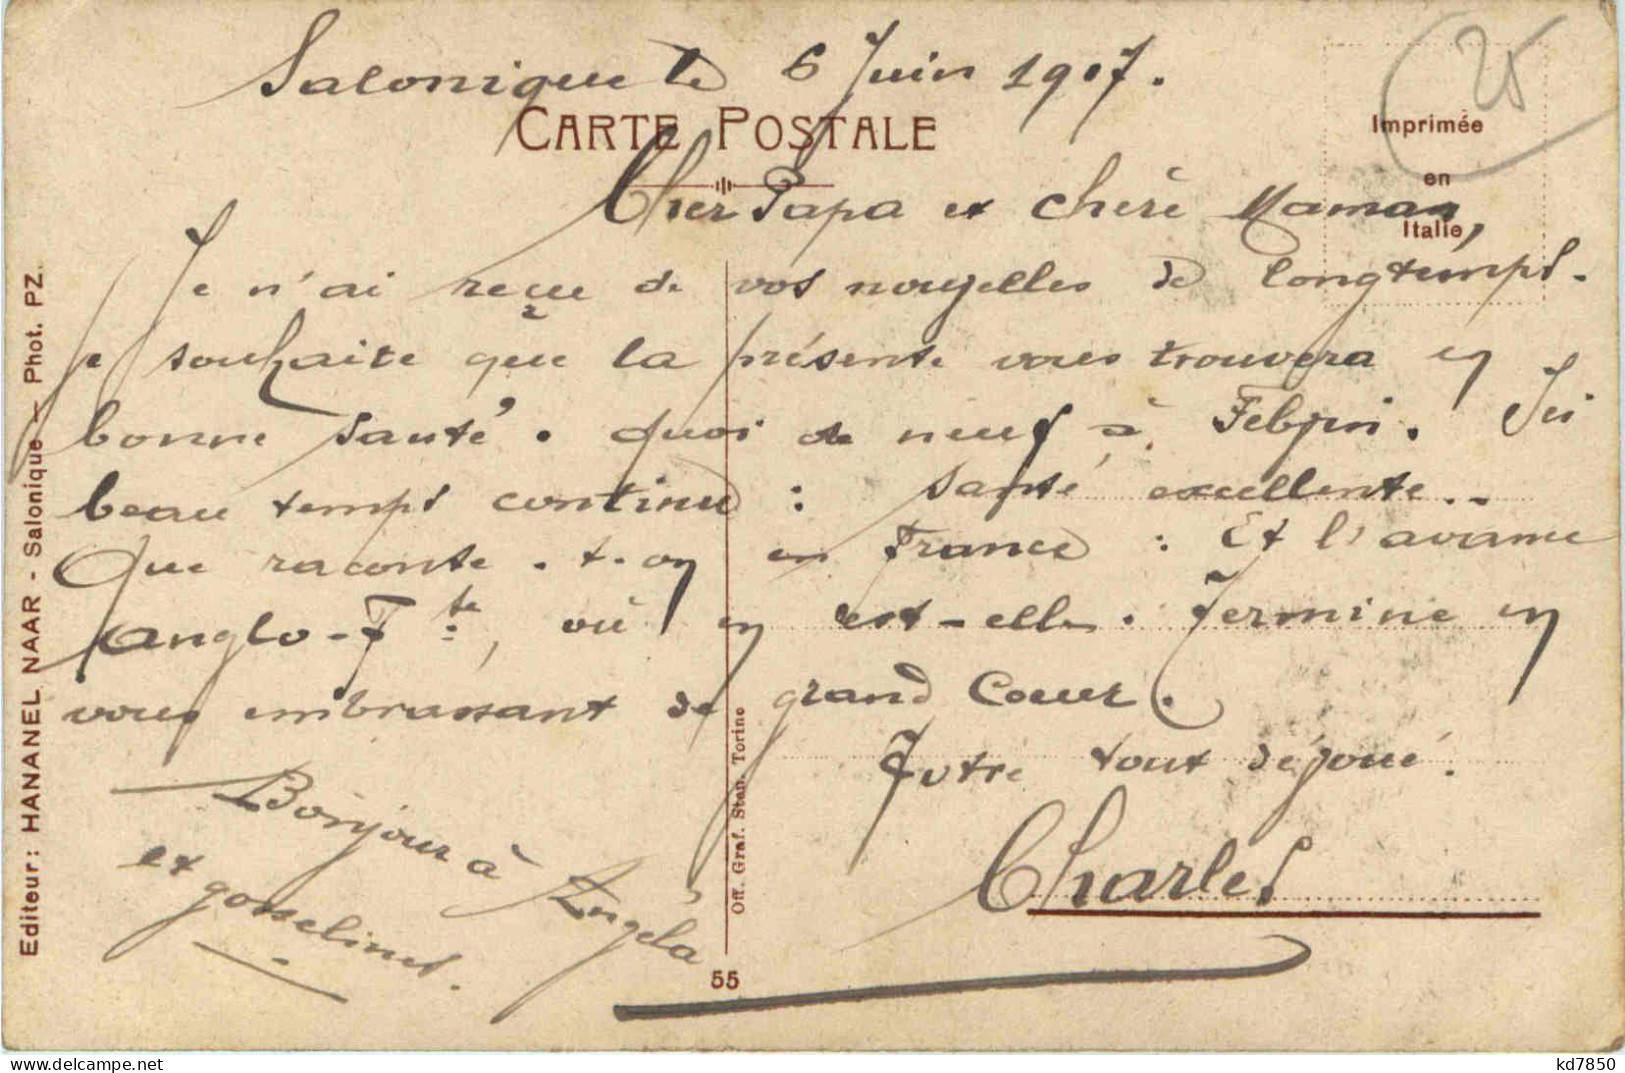 Salonique le 6 Juin 1917.
CARTE POSTALE
25
Imprimée
en
Italie
Cher Papa et chère Maman,
Je n'ai reçue de vos nouvelles de longtemps.
Je souhaite que la présente vous trouvera en
bonne santé. Quoi de neuf à Febvin. Ici
beau temps continu : santé excellente..
Que raconte-t-on en France : Et l'avance
Anglo-F te:, où en est-elle. Termine en
vous embrassant de grand Coeur.
Votre tout dé joué.
Charles
Bonjour à Angéla
et gosselines.
Editeur: HANANEL NAAR - Salonique — Phot. PZ.
Off. Graf. Stan. Torino
55
kd7850